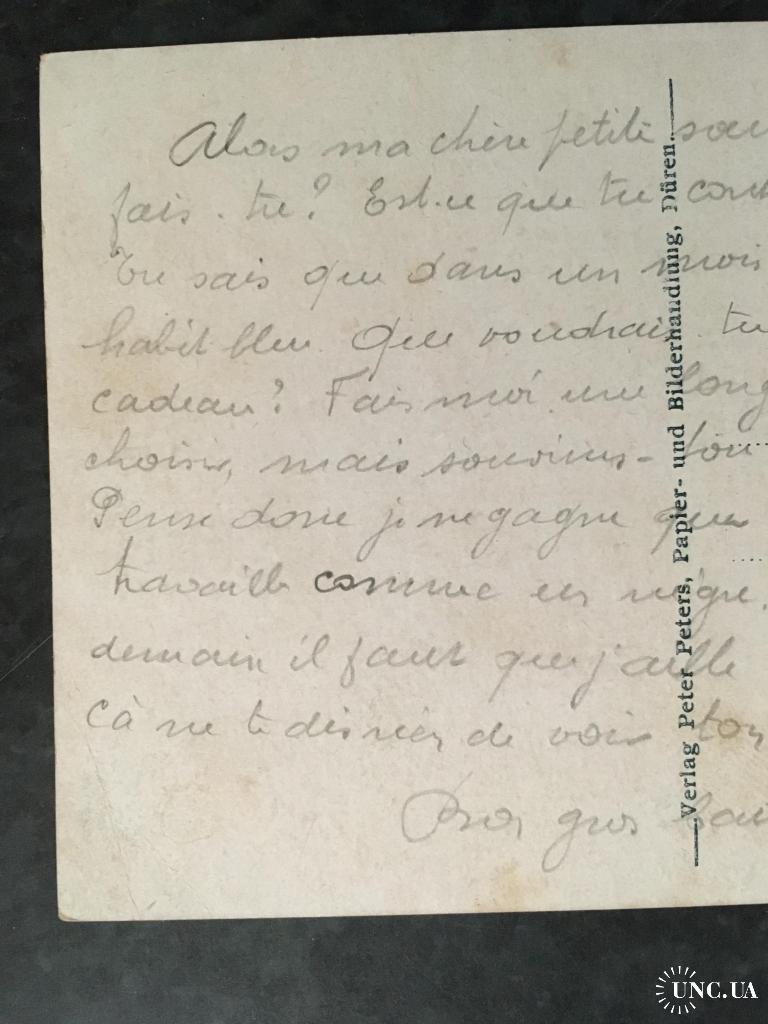 Alors ma chère petite sœu
fais-tu? Est-ce que tu cont
Tu sais que dans un mois
habit bleu. Que voudrais-tu
cadeau? Fais moi une long
choisir, mais souviens-toi
Pense donc je ne gagne que
travaille comme un nègre.
demain il faut que j'aille
Cà ne te dis rien de voir ton
Bon gros bai
Verlag Peter Peters, Papier- und Bilderhandlung, Düren.
UNC.UA